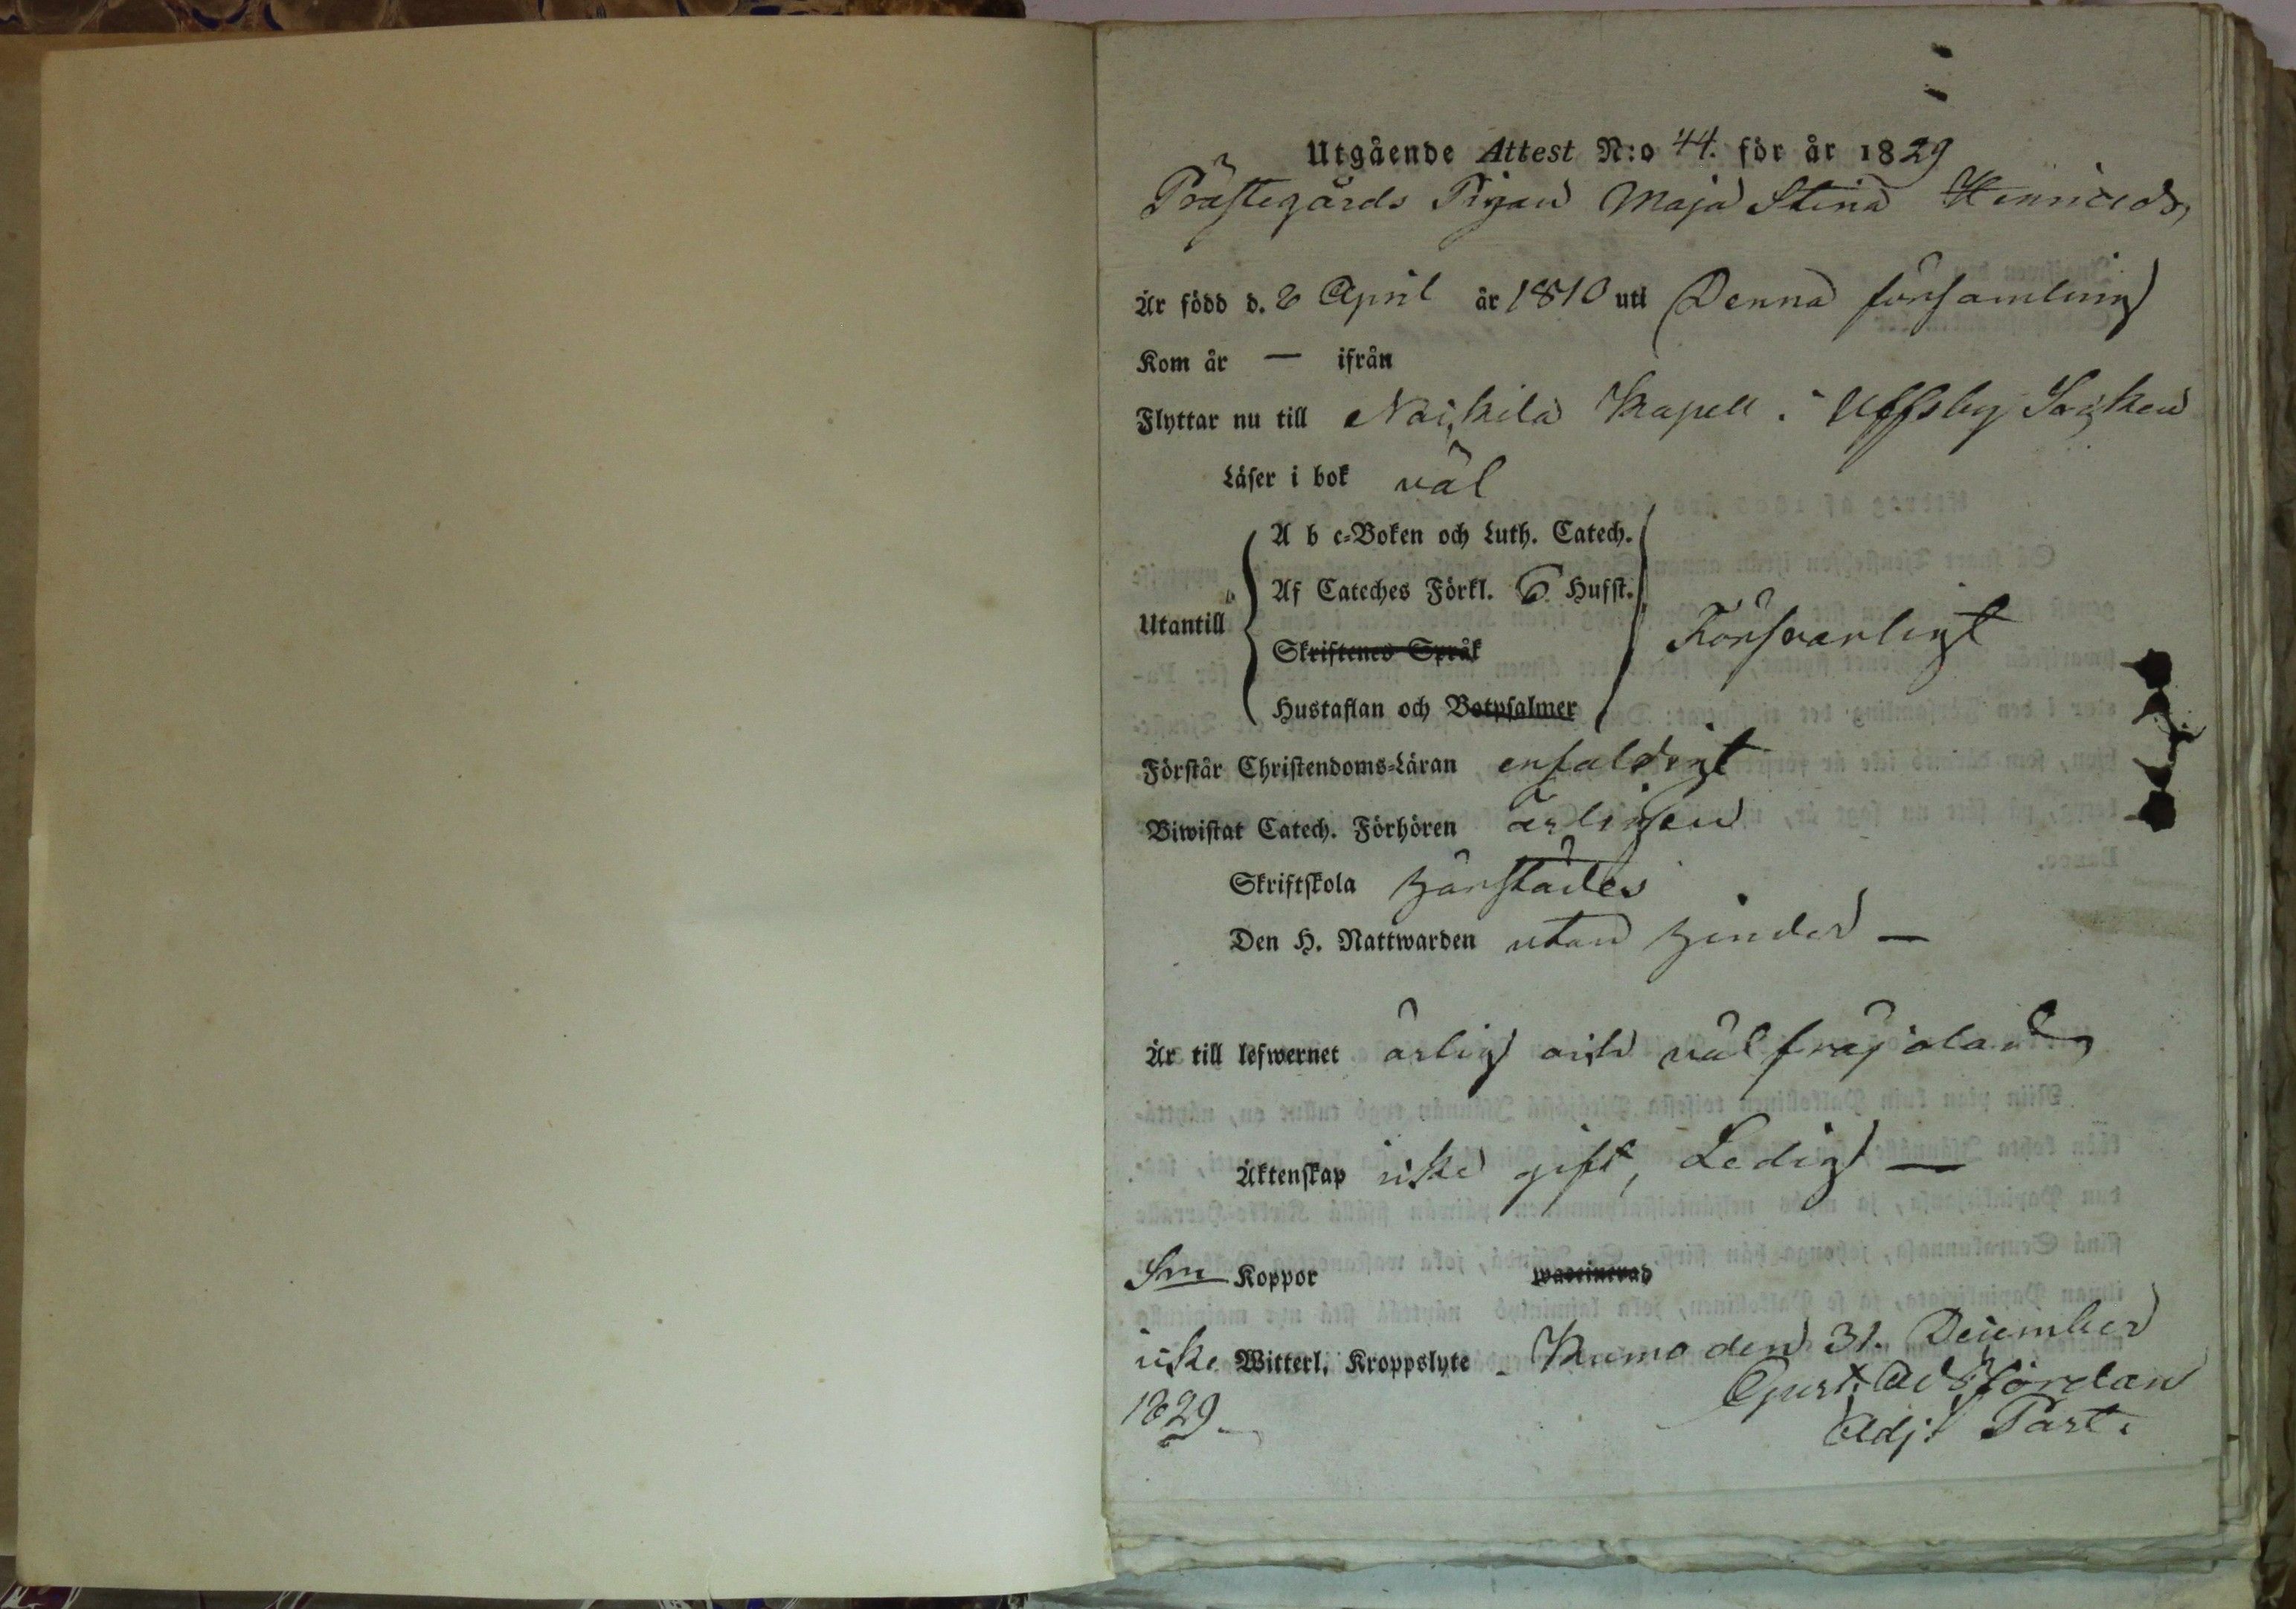 Utgående Attest N:o 44. för år 1829
Prästegårds Pigan Maja Stina Henricsdr
Är född d. 8 April år 1810 uti Denna församling
Kom år — ifrån
Flyttar nu till Nackila Kapell i Ulfsby Socken
Läser i bok väl
A b c-Boken och Luth. Catech.
Af Cateches Förkl. 6 Hufst.
Utantill
Försvarligt
Skriftenes Språk
Hustaflan och Botpsalmer
Förstår Christendoms-Läran enfaldigt
Biwistat Catech. Förhören årligen
Skriftskola härstädes
Den H. Nattwarden utan hinder —
Är till lefwernet ärlig och välfräjdad
Äktenskap icke gift, Ledig —
Koppor waccinerad
icke Witterl. Kroppslyte - Kumo den 31. December
1829.
Gust. Ad.
Adj: Past.